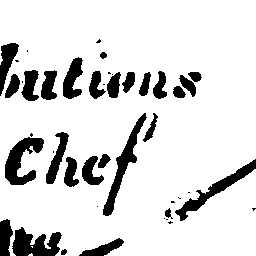 butions
Chef